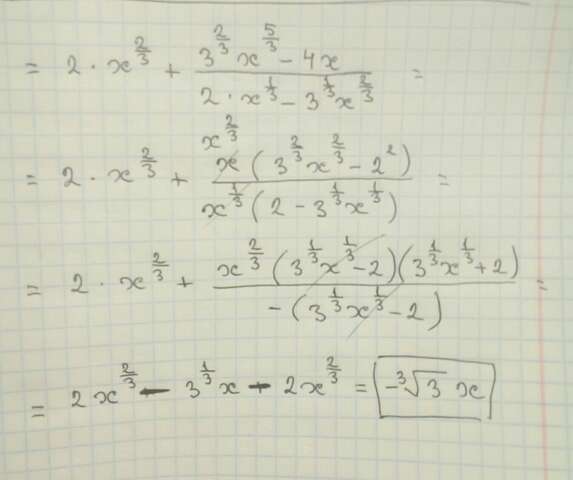 = 2 · x^{2/3} + \frac{3^{2/3} x^{5/3} - 4x}{2 · x^{1/3} - 3^{1/3} x^{2/3}} =
= 2 · x^{2/3} + \frac{x^{2/3} x (3^{2/3} x^{2/3} - 2^2)}{x^{1/3} (2 - 3^{1/3} x^{1/3})} =
= 2 · x^{2/3} + \frac{x^{2/3} (3^{1/3} x^{1/3} - 2)(3^{1/3} x^{1/3} + 2)}{-(3^{1/3} x^{1/3} - 2)} =
= 2x^{2/3} - 3^{1/3} x - 2x^{2/3} = -\sqrt[3]{3} x